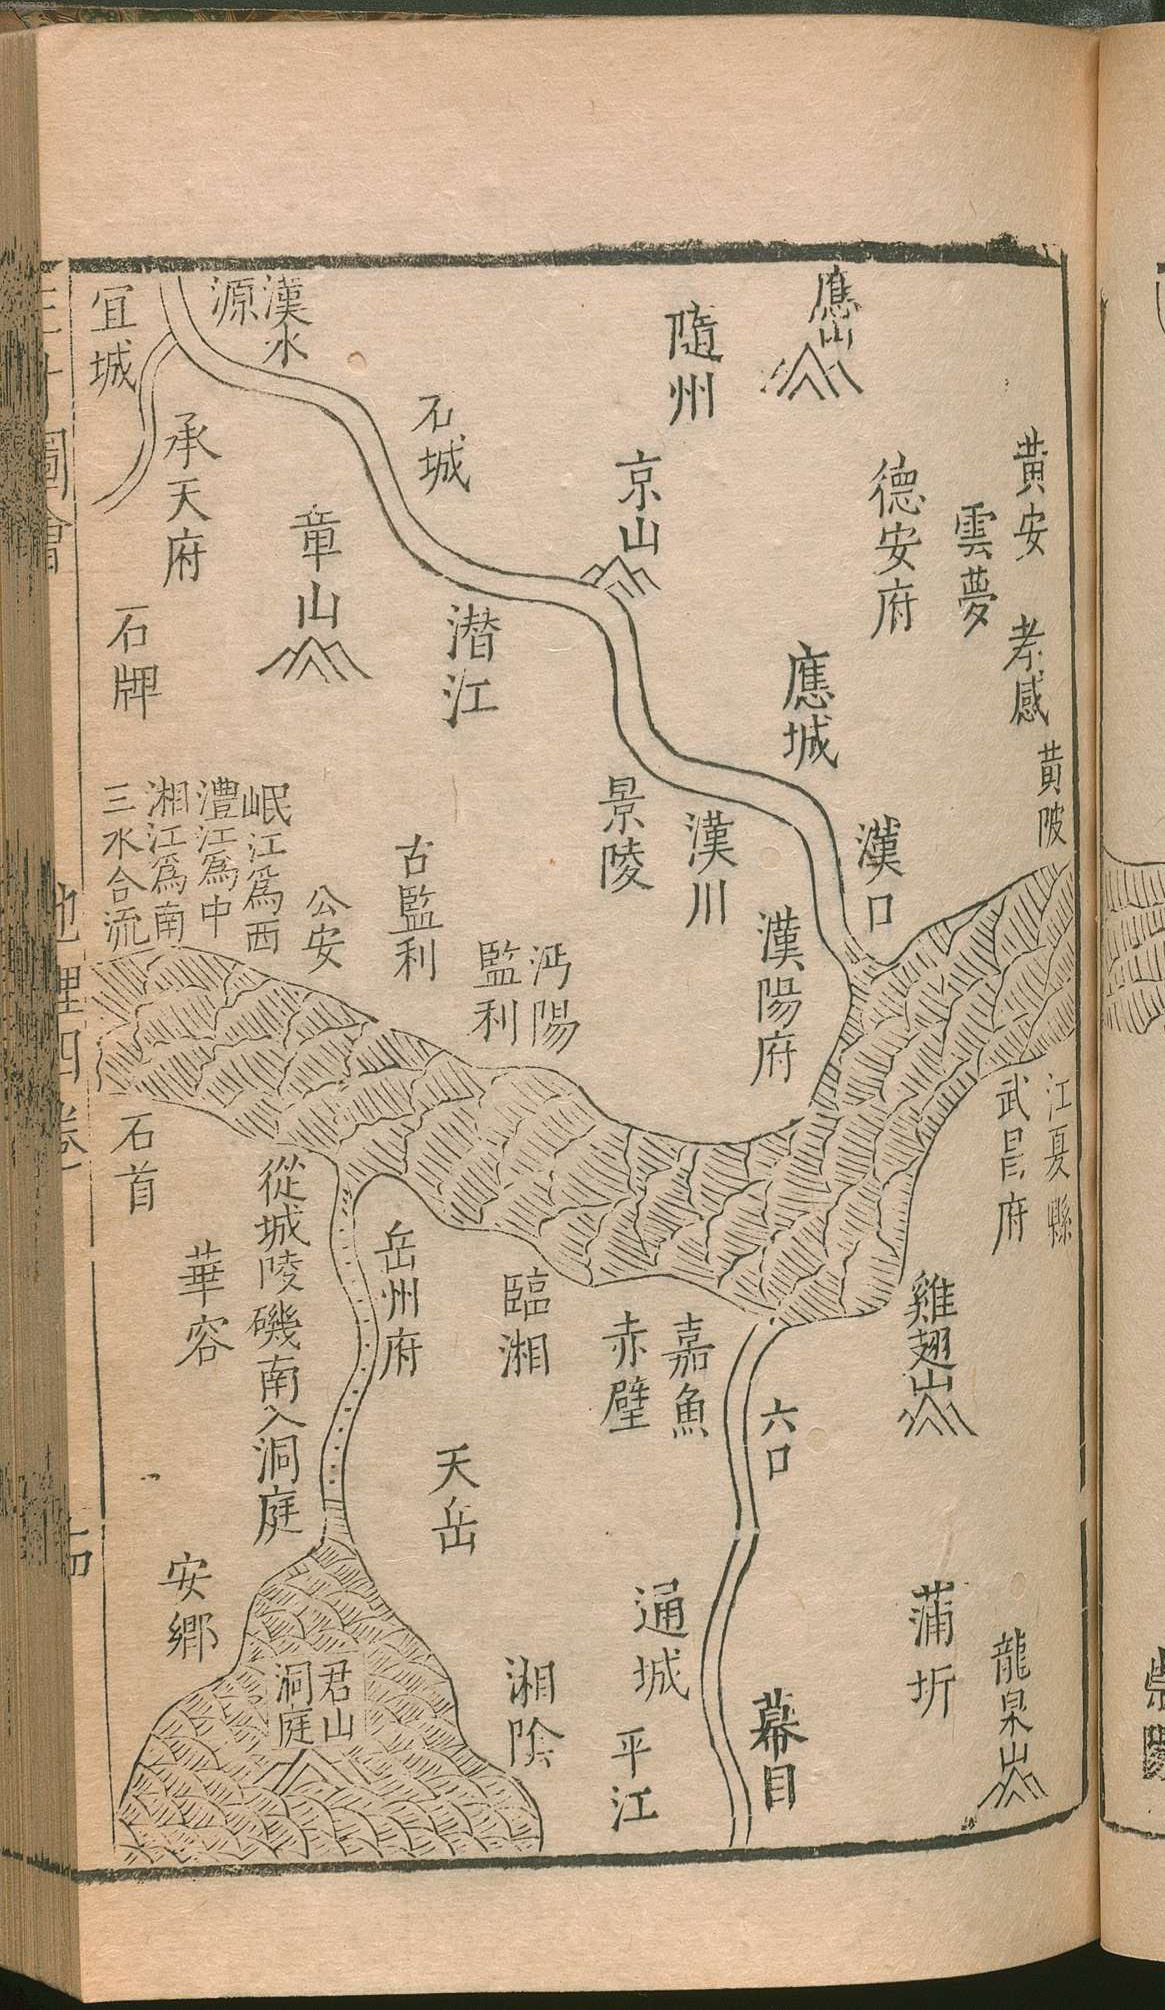 應山
隨州
黃安
德安府
雲夢
孝感
黃陂
應城
漢口
京山
石城
漢水
源
宜城
承天府
章山
潜江
石牌
景陵
漢川
漢陽府
沔陽
監利
古監利
公安
岷江爲西
澧江爲中
湘江爲南
三水合流
江夏縣
武昌府
雞翅山
六口
嘉魚
赤壁
臨湘
岳州府
從城陵磯南入洞庭
石首
華容
天岳
安鄉
君山
洞庭
湘陰
通城
平江
幕目
蒲圻
龍泉山
三才圖會
地理四卷